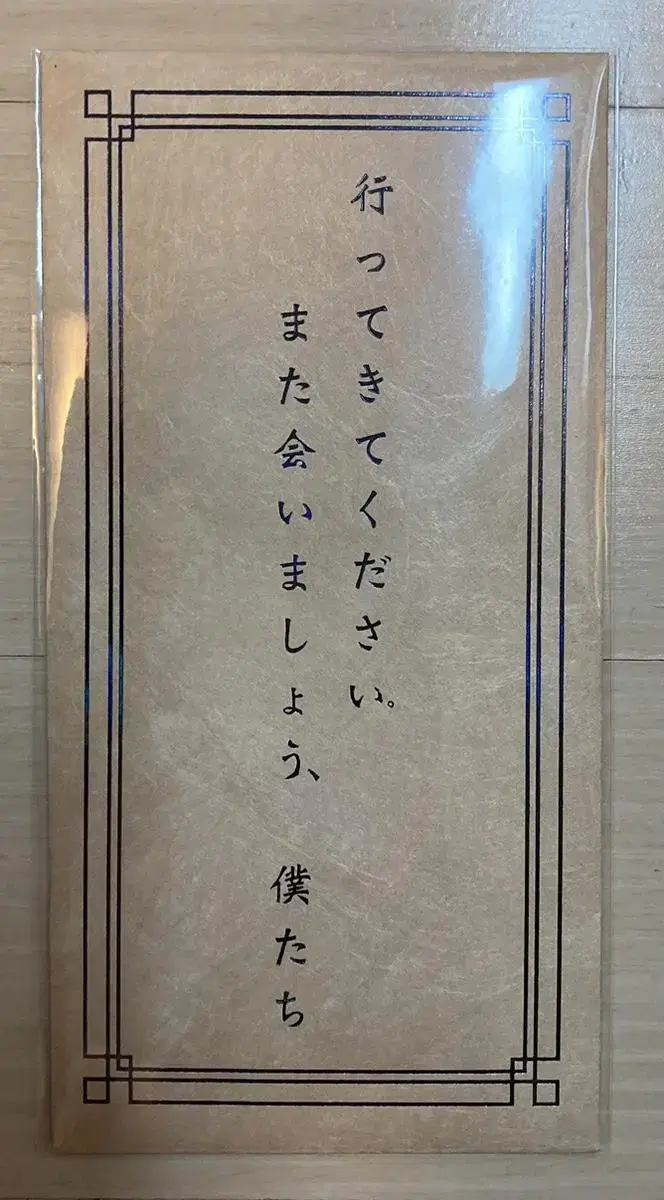 行ってきてください。
また会いましょう、 僕たち